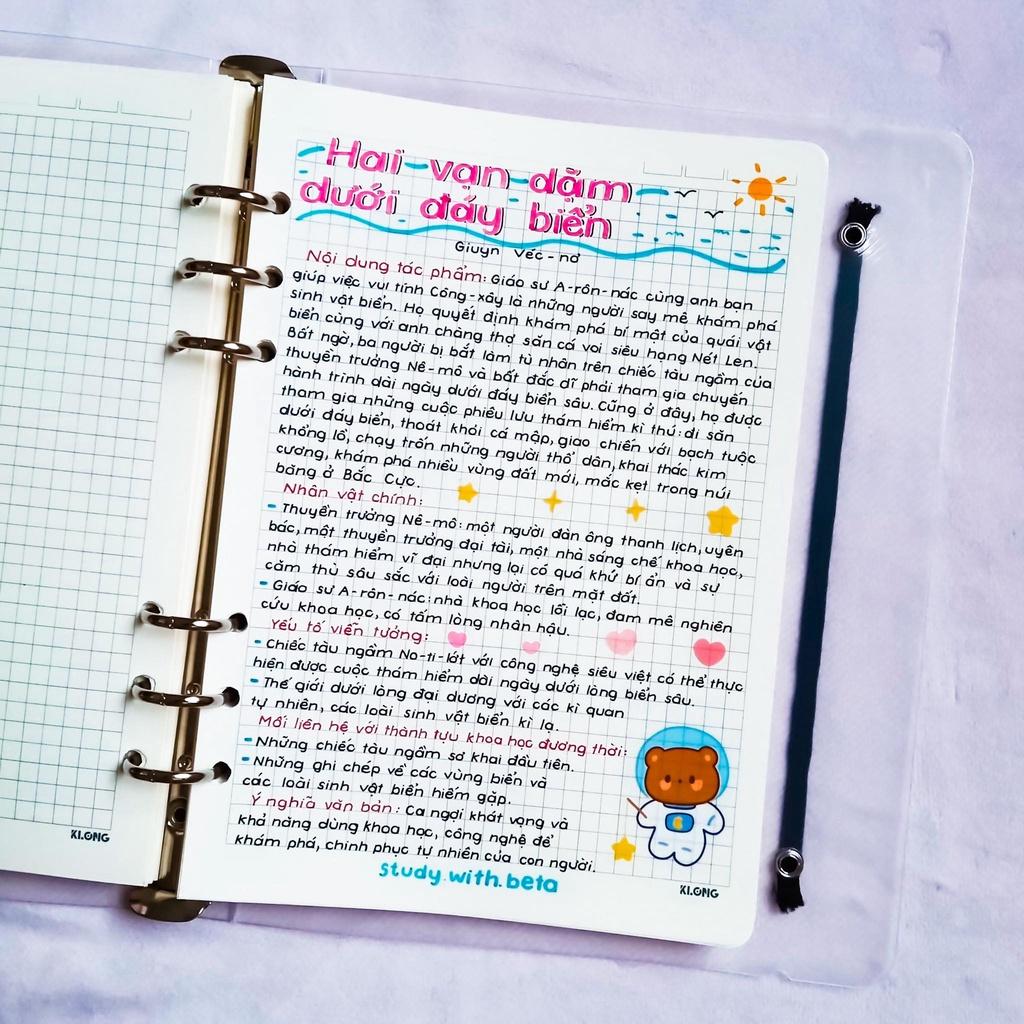 Hai vạn dặm
dưới đáy biển
Giuyn Véc-nơ
Nội dung tác phẩm: Giáo sư A-rôn-nác cùng anh bạn
giúp việc vui tính Công-xây là những người say mê khám phá
sinh vật biển. Họ quyết định khám phá bí mật của quái vật
biển cùng với anh chàng thợ săn cá voi siêu hạng Nét Len.
Bất ngờ, ba người bị bắt làm tù nhân trên chiếc tàu ngầm của
thuyền trưởng Nê-mô và bất đắc dĩ phải tham gia chuyến
hành trình dài ngày dưới đáy biển sâu. Cũng ở đây, họ được
tham gia những cuộc phiêu lưu thám hiểm kì thú: đi săn
dưới đáy biển, thoát khỏi cá mập, giao chiến với bạch tuộc
khổng lồ, chạy trốn những người thổ dân, khai thác kim
cương, khám phá nhiều vùng đất mới, mắc kẹt trong núi
băng ở Bắc Cực.
Nhân vật chính:
- Thuyền trưởng Nê-mô: một người đàn ông thanh lịch, uyên
bác, một thuyền trưởng đại tài, một nhà sáng chế khoa học,
nhà thám hiểm vĩ đại nhưng lại có quá khứ bí ẩn và sự
căm thù sâu sắc với loài người trên mặt đất.
- Giáo sư A-rôn-nác: nhà khoa học lỗi lạc, đam mê nghiên
cứu khoa học, có tấm lòng nhân hậu.
Yếu tố viễn tưởng:
- Chiếc tàu ngầm No-ti-lớt với công nghệ siêu việt có thể thực
hiện được cuộc thám hiểm dài ngày dưới lòng biển sâu.
- Thế giới dưới lòng đại dương với các kì quan
tự nhiên, các loài sinh vật biển kì lạ.
Mối liên hệ với thành tựu khoa học đương thời:
- Những chiếc tàu ngầm sơ khai đầu tiên.
- Những ghi chép về các vùng biển và
các loài sinh vật biển hiếm gặp.
Ý nghĩa văn bản: Ca ngợi khát vọng và
khả năng dùng khoa học, công nghệ để
khám phá, chinh phục tự nhiên của con người.
study.with.beta
KI.ONG
KI.ONG